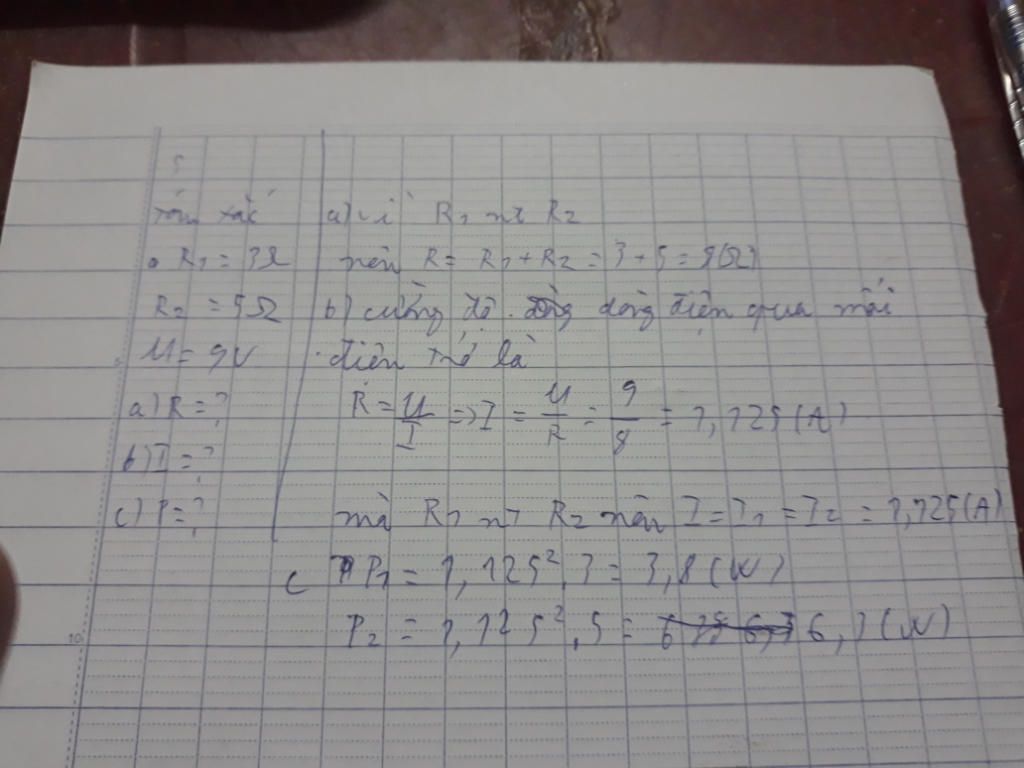 Tóm tắt
R1 = 3Ω
R2 = 5Ω
U = 9V
a) R = ?
b) I = ?
c) P = ?
a) vì R1 nt R2
nên R = R1 + R2 = 3 + 5 = 8(Ω)
b) cường độ dòng điện qua mỗi
điện trở là
R = U/I => I = U/R = 9/8 = 1,125(A)
mà R1 nt R2 nên I = I1 = I2 = 1,125(A)
c P1 = 1,125².3 = 3,8(W)
P2 = 1,125².5 = 6,3(W)
10